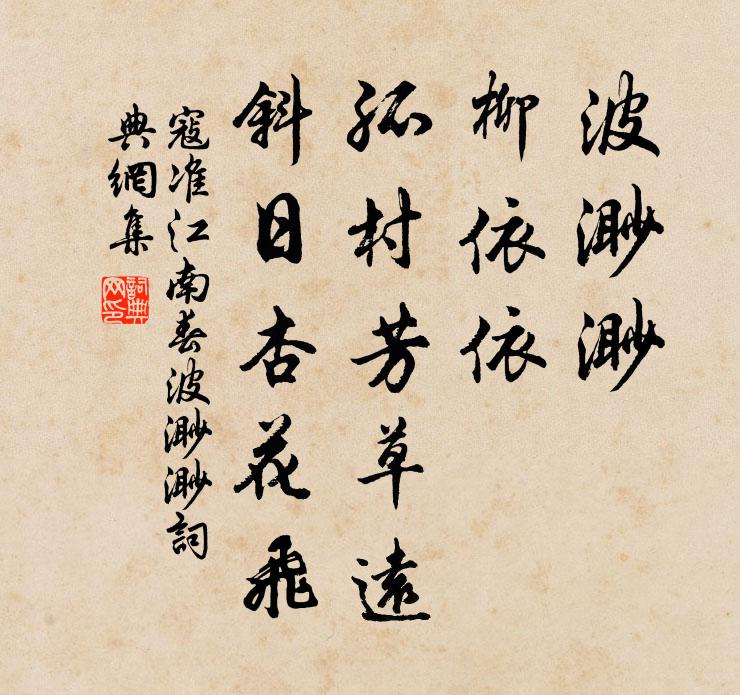 波渺渺
柳依依
孤村芳草遠
斜日杏花飛
寇准江南春波渺渺詞
典網集
詞典
网印